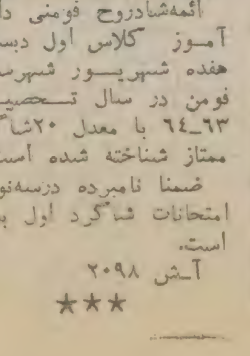 ائمه‌شادروح فومنی دا
آمـوز کلاس اول دبس
هفده شهریـور شهرس
فومن در سال تـحصیـ
۶۳ـ۶۴ با معدل ۲۰شا
ممتاز شناخته شده اسـ
ضمنا نامبرده درسه‌نو
امتحانات شاگرد اول بـ
است.
آـش ۲۰۹۸
★★★